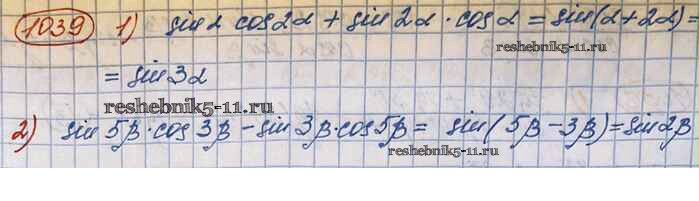 1039 1) sinα cos2α + sin2α · cosα = sin(α+2α) =
= sin3α
reshebnik5-11.ru
2) sin5β·cos3β - sin3β·cos5β = sin(5β-3β)=sin2β
reshebnik5-11.ru